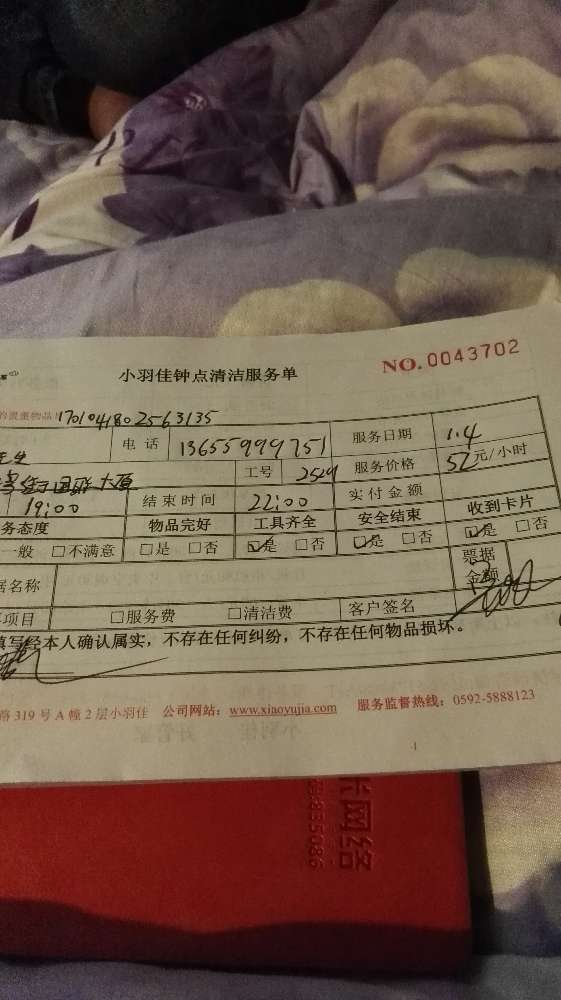 小羽佳钟点清洁服务单
NO.0043702
的贵重物品 1701041802563135
电话 13655999751 服务日期 1.4
工号 2529 服务价格 52元/小时
19:00 结束时间 22:00 实付金额
务态度 物品完好 工具齐全 安全结束 收到卡片
一般 □不满意 □是 □否 ☑是 □否 ☑是 □否 ☑是 □否
据名称 票据金额
项目 □服务费 □清洁费 客户签名
填写经本人确认属实，不存在任何纠纷，不存在任何物品损坏。
路319号A幢2层小羽佳 公司网站：www.xiaoyujia.com 服务监督热线：0592-5888123
1
网络